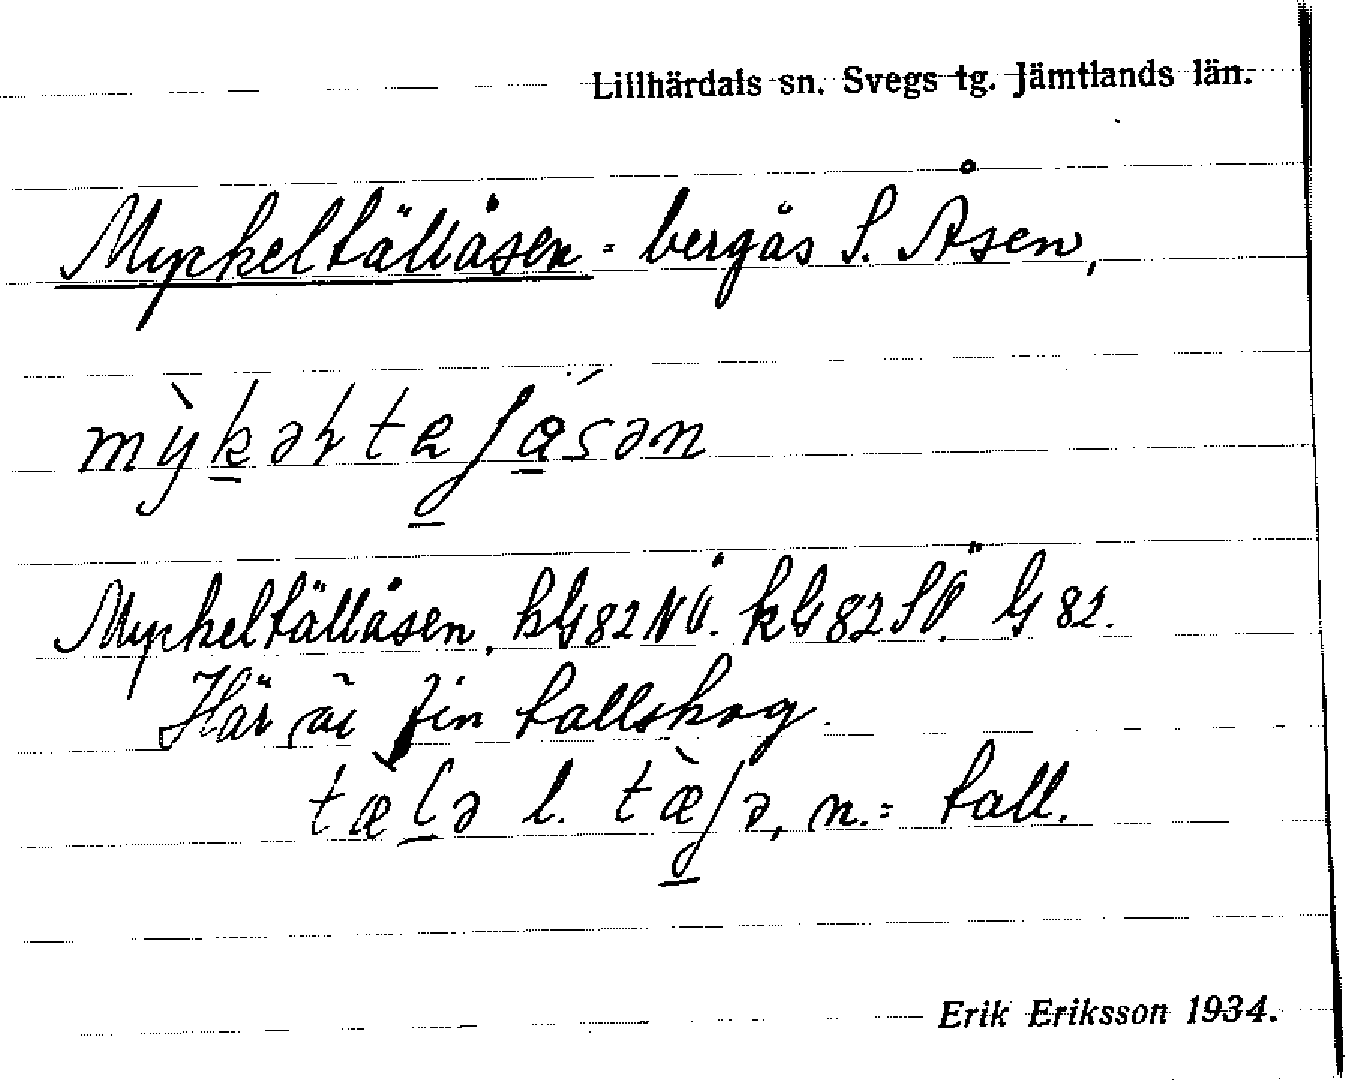 Lillhärdals sn. Svegs tg. Jämtlands län.
Myckeltällåsen - bergås S. Åsen,
Myckeltällåsen, kG82NÖ. kG82SÖ. G 82.
Här är fin tallskog.
l. n. = tall.
Erik Eriksson 1934.